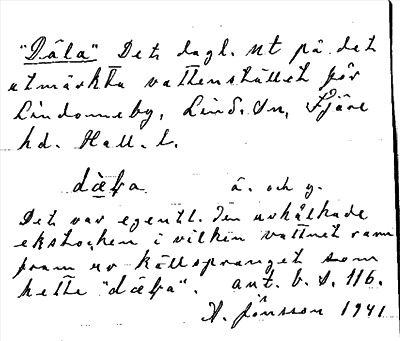 "Dåla" Det dagl. nt på det
utmärkta vattenstället för
Lindomeby, Lind. sn, Fjäre
hd. Hall. l.
ä. och y.
Det var egentl. den urhålkade
ekstocken i vilken vattnet rann
fram ur källsprånget som
hette ant. b. s. 116.
A. Jönsson 1941